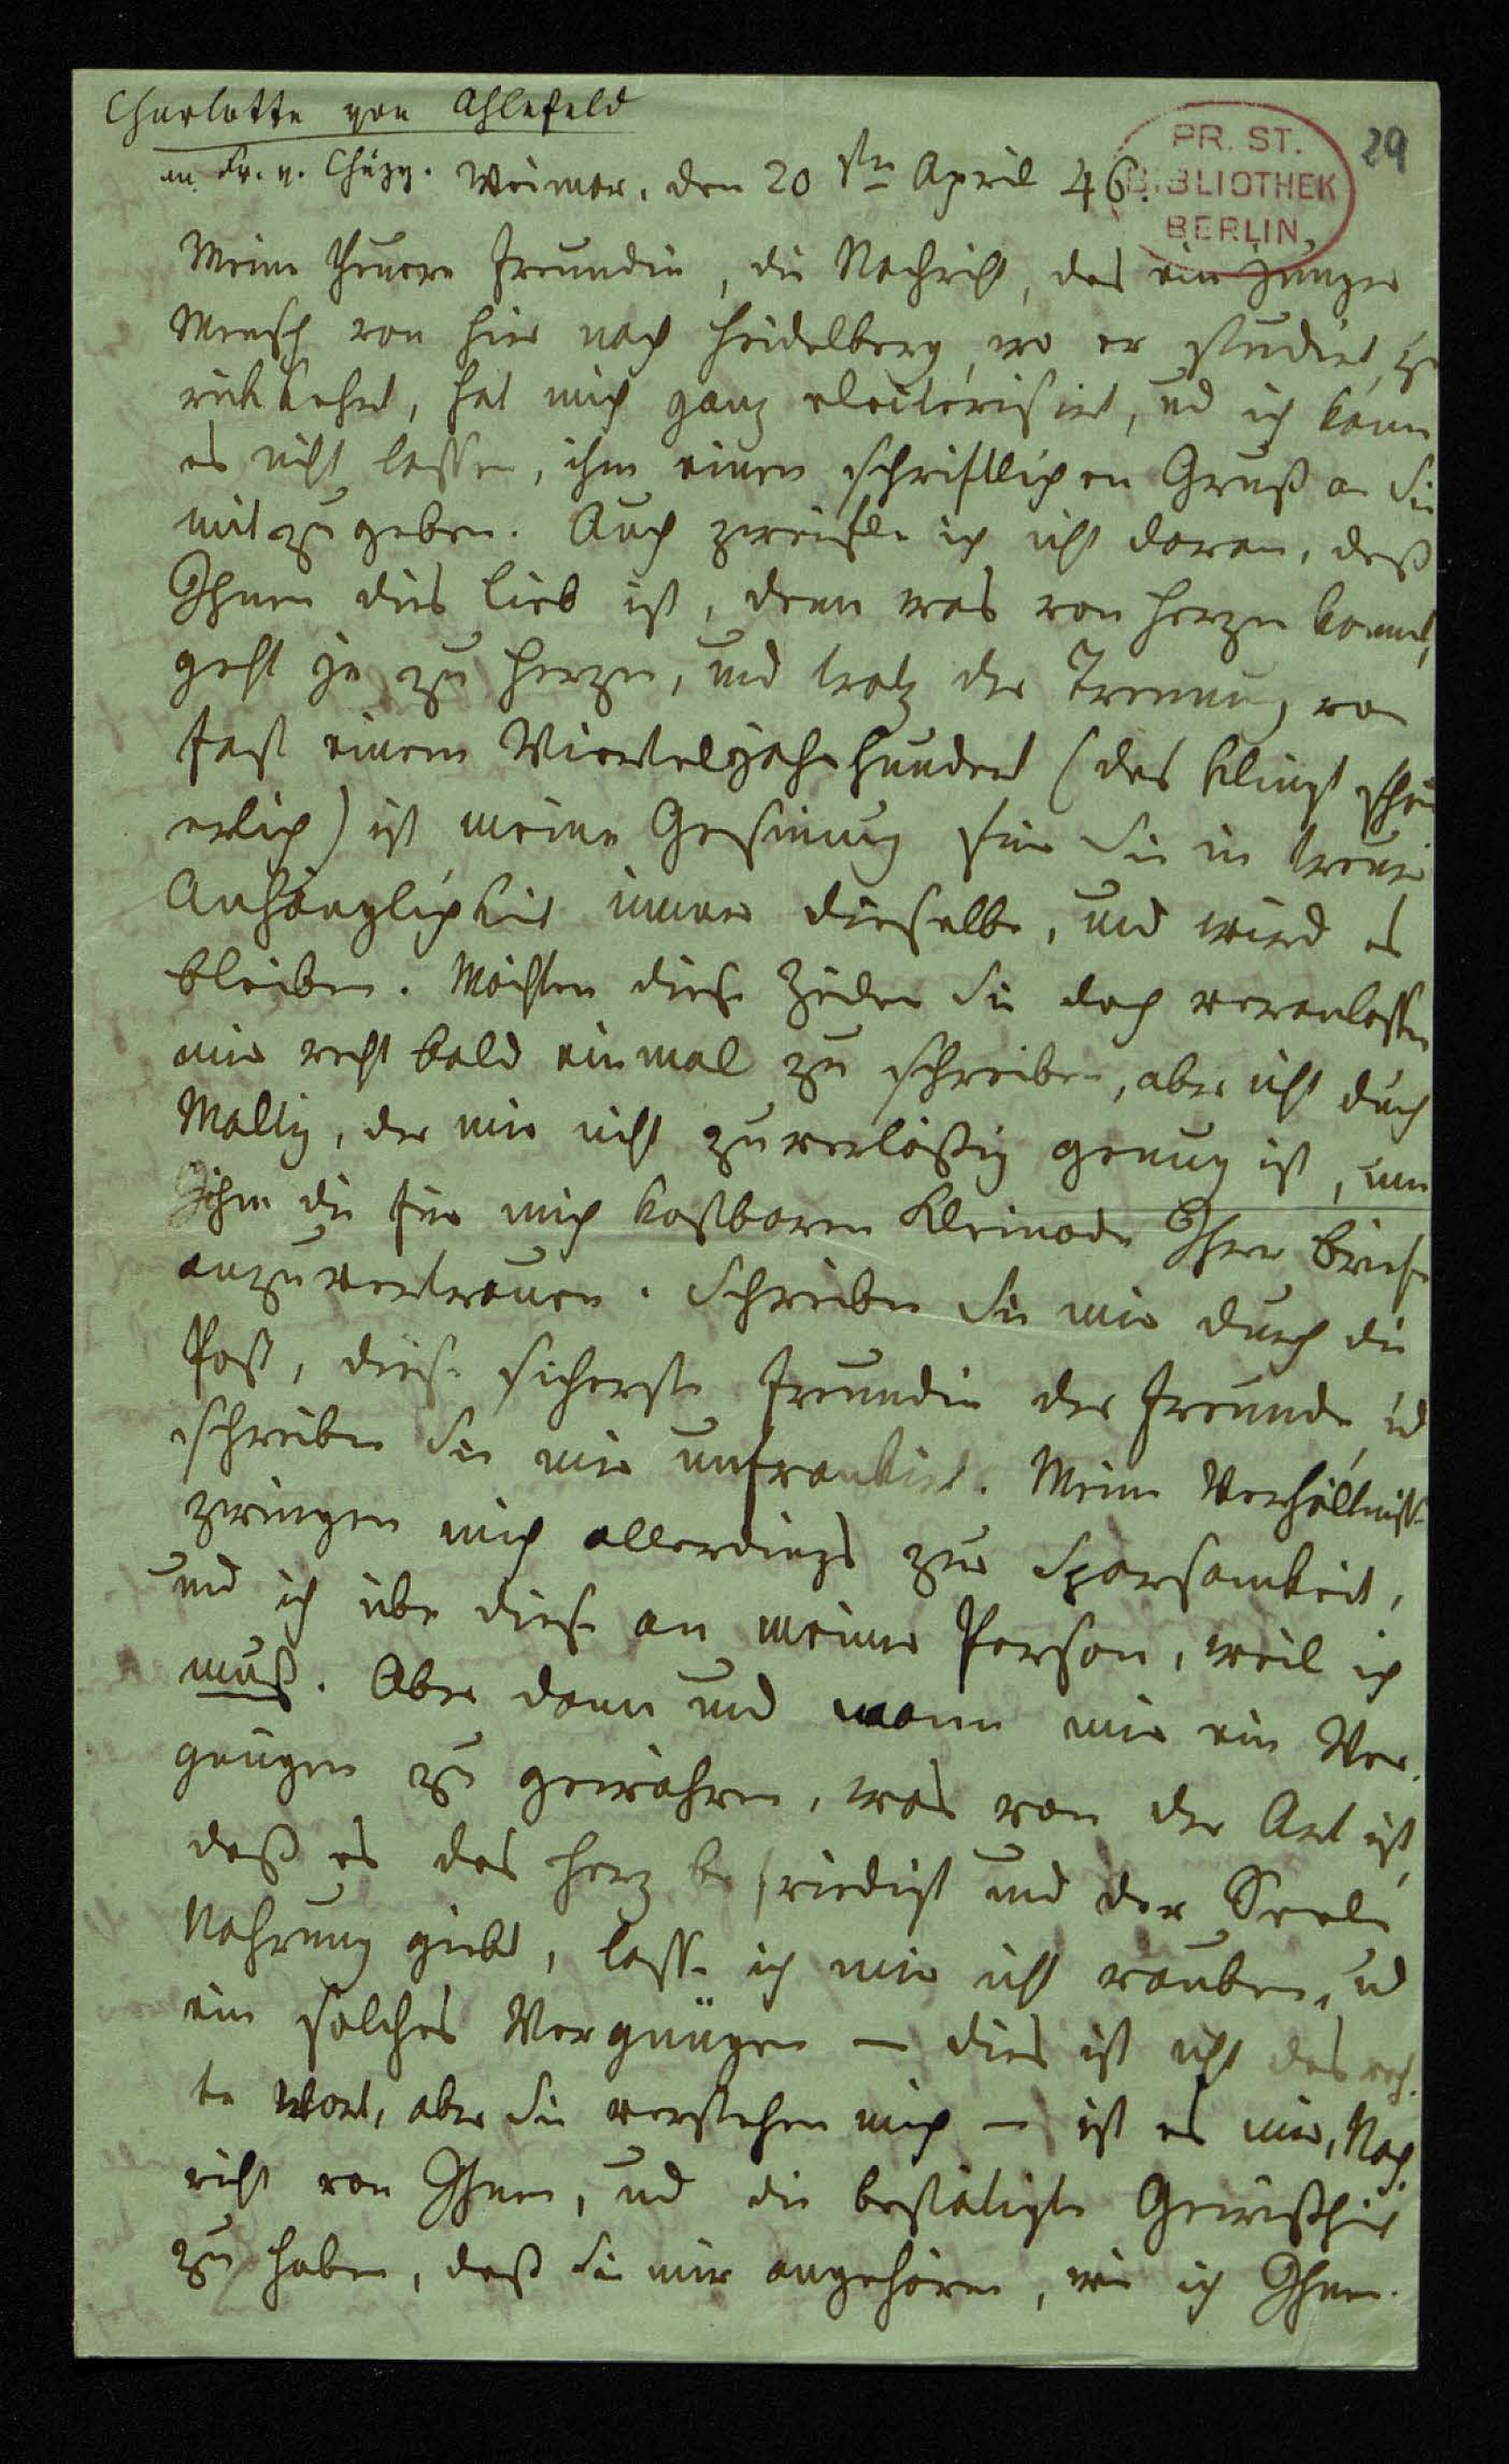 Charlotte von Ahlefeld
an Fr. v. Chézy.
Weimar, den 20 sten April 46.
PR. ST.
BIBLIOTHEK
BERLIN
29
Meine theuere Freundin, die Nachricht, das ein junger
Mensch von hier nach Heidelberg, wo er studirt, zu
rükkehrt, hat mich ganz electerisirt, und ich kann
es nicht lassen, ihm einen schriftlichen Gruß an Sie
mitzugeben. Auch zweifle ich nicht daran, daß
Ihnen dies lieb ist, denn was von Herzen kommt,
geht ja zu Herzen, und trotz der Trennung von
fast einem Vierteljahrhundert (das klingt schau
erlich) ist meine Gesinnung für Sie in treuer
Anhänglichkeit immer dieselbe, und wird es
bleiben. Möchten diese Zeilen Sie doch veranlassen
mir recht bald einmal zu schreiben, aber nicht durch
Maltiz, der mir nicht zuverläßig genug ist, um
ihm die für mich kostbaren Kleinode Ihrer Briefe
anzuvertrauen. Schreiben Sie mir durch die
Post, diese sicherste Freundin der Freunde, und
schreiben Sie mir unfrankirt. Meine Verhältnisse
zwingen mich allerdings zur Sparsamkeit,
und ich übe diese an meiner Person, weil ich
muß. Aber dann und wann mir ein Ver-
gnügen zu gewähren, was von der Art ist,
daß es das Herz befriedigt und der Seele
Nahrung giebt, lasse ich mir nicht rauben, und
ein solches Vergnügen — dies ist nicht das rech-
te Wort, aber Sie verstehen mich — ist es mir, Nach-
richt von Ihnen, und die bestätigte Gewißheit
zu haben, daß Sie mir angehören, wie ich Ihnen.